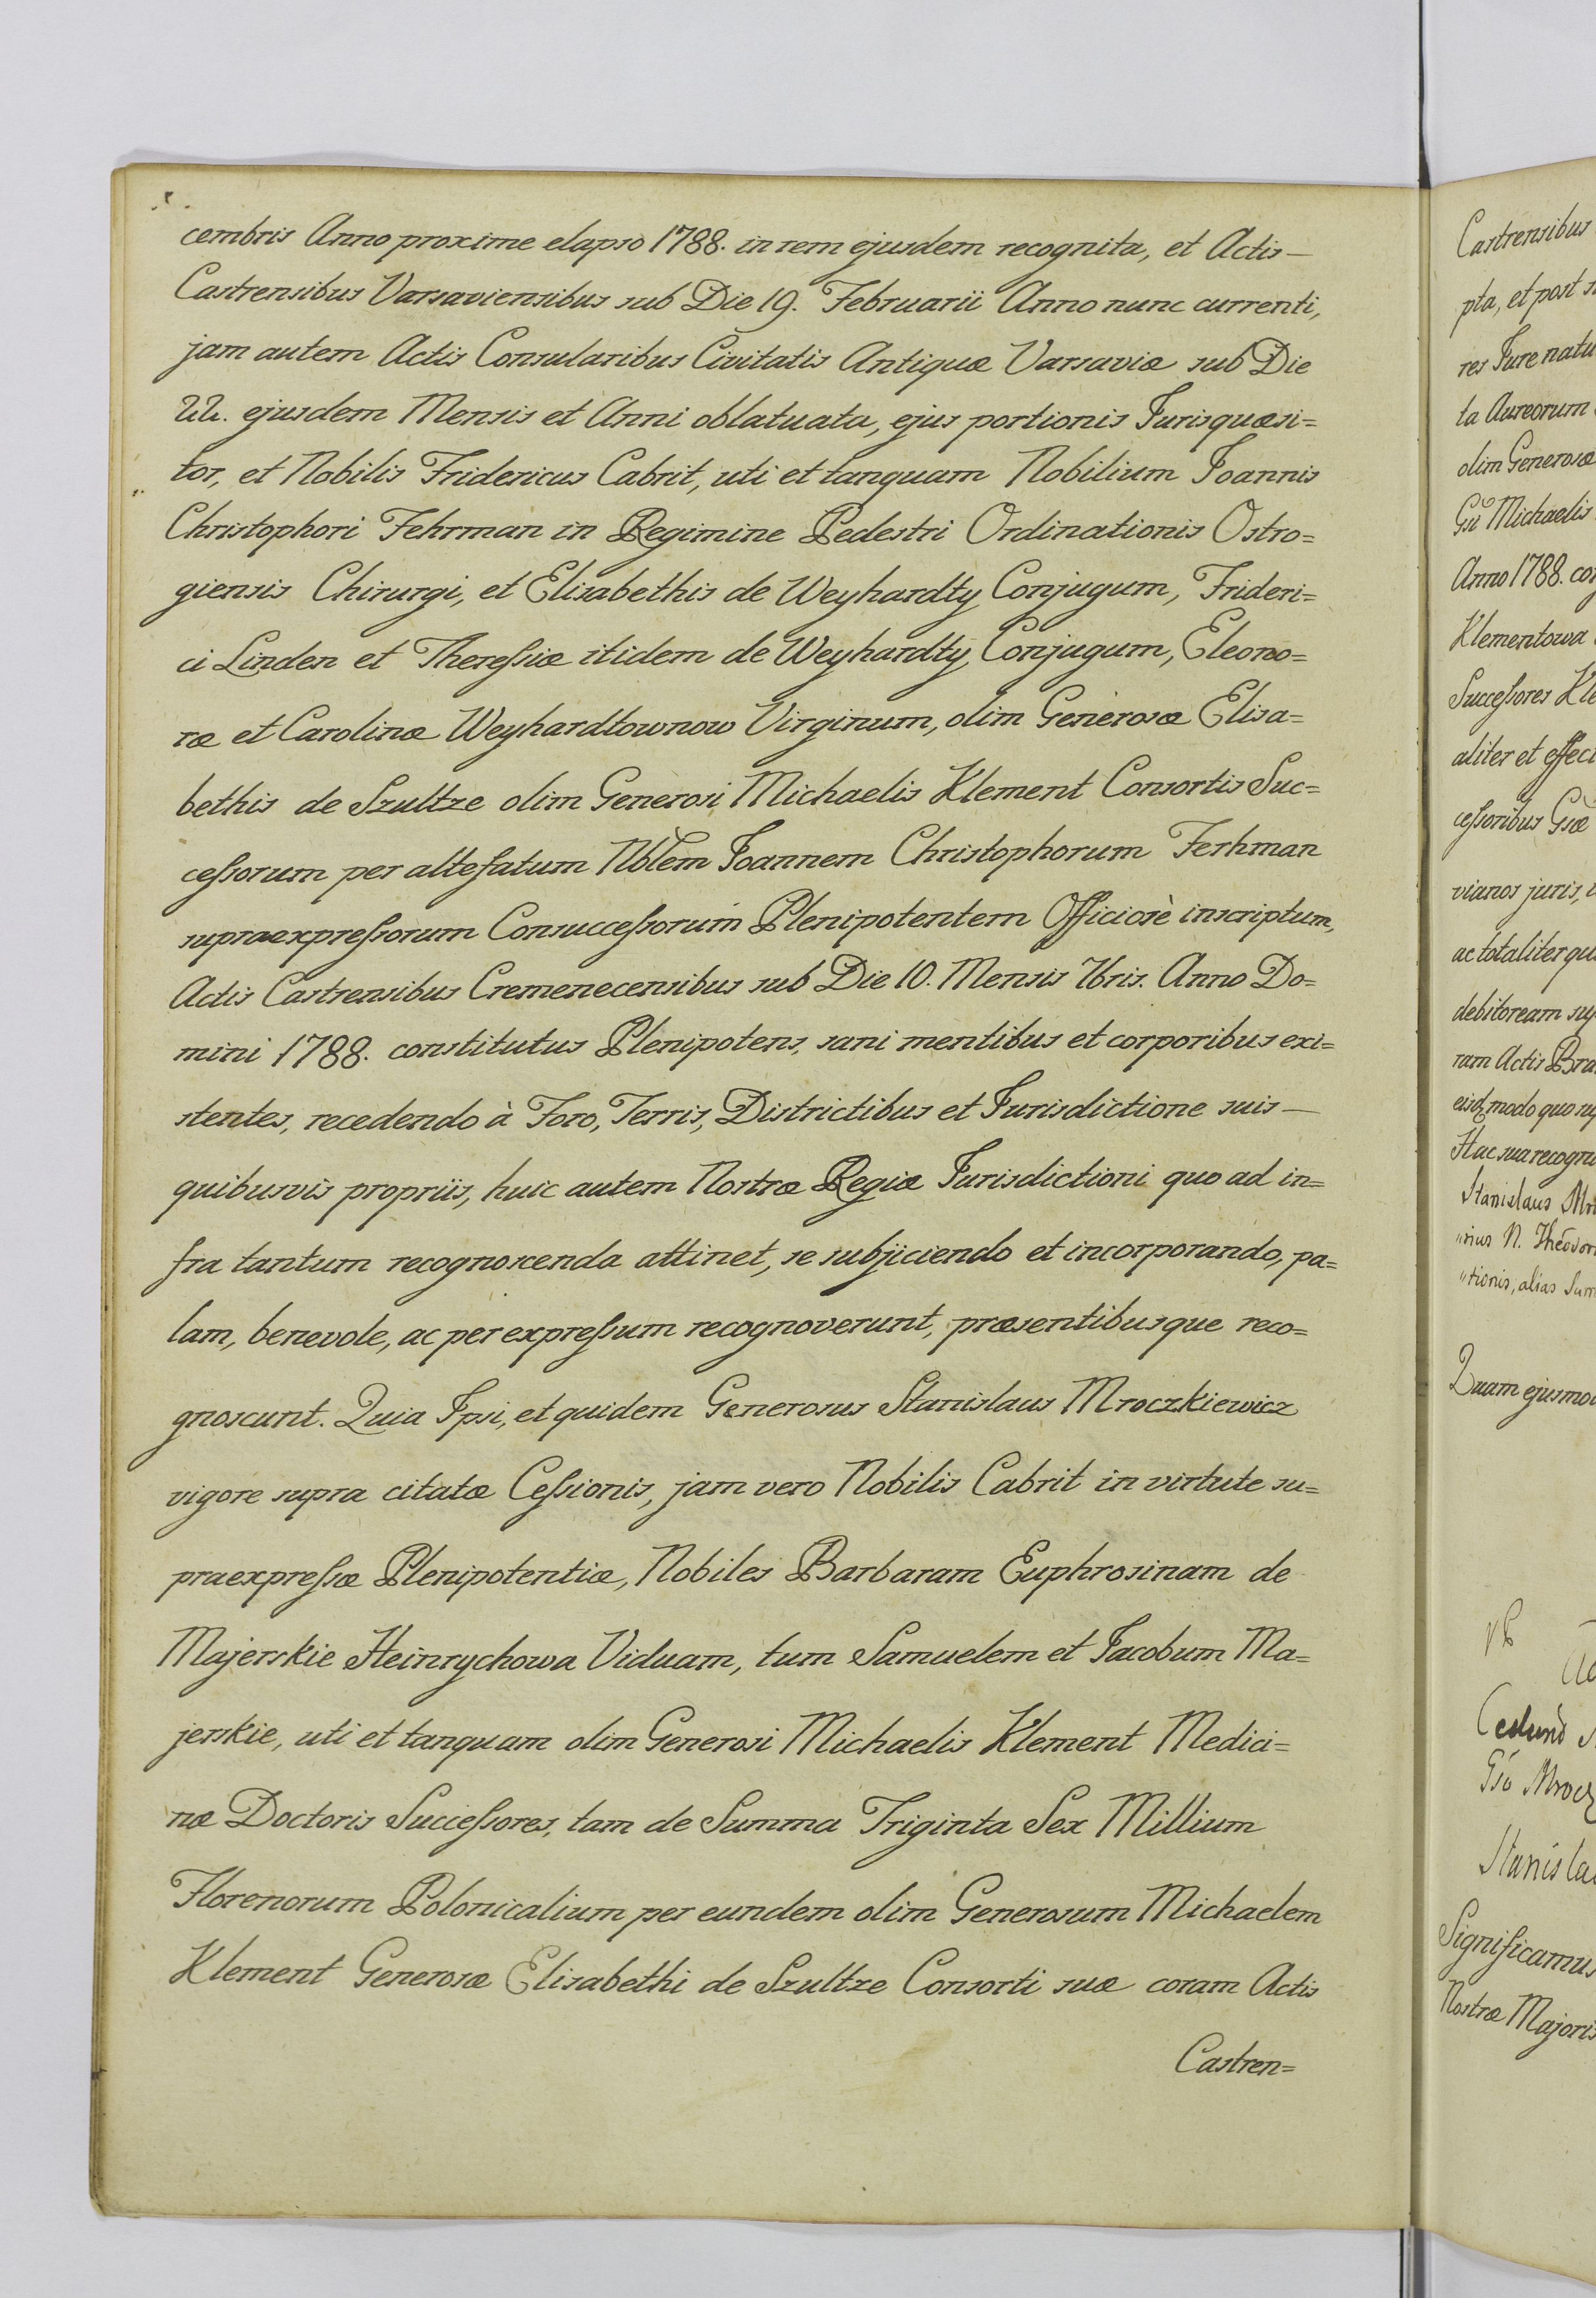 cembris Anno proxime elapso 1788. in rem ejusdem recognita, et Actis —
Castrensibus Varsaviensibus sub Die 19. Februarii Anno nunc currenti,
jam autem Actis Consularibus Civitatis Antiquæ Varsaviæ sub Die
22. ejusdem Mensis et Anni oblatuata, ejus portionis Jurisquæsi=
tor, et Nobilis Fridericus Cabrit, uti et tanquam Nobilium Joannis
Christophori Fehrman in Regimine Pedestri Ordinationis Ostro=
giensis Chirurgi, et Elisabethis de Weyhardty Conjugum, Frideri=
ci Linden et Thereſsiæ itidem de Weyhardty Conjugum, Eleono=
ræ et Carolinæ Weyhardtownow Virginum, olim Generosæ Elisa=
bethis de Szultze olim Generosi Michaelis Klement Consortis Suc=
ceſsorum per altefatum Nblem Joannem Christophorum Ferhman
supraexpreſsorum Consucceſsorum Plenipotentem Officiosè inscriptum,
Actis Castrensibus Cremenecensibus sub Die 10. Mensis 7bris. Anno Do=
mini 1788. constitutus Plenipotens, sani mentibus et corporibus exi=
stentes, recedendo à Foro, Terris, Districtibus et Jurisdictione suis —
quibusvis propriis, huic autem Nostræ Regiæ Jurisdictioni quo ad in=
fra tantum recognoscenda attinet, se subjiciendo et incorporando, pa=
lam, benevole, ac per expreſsum recognoverunt, præsentibusque reco=
gnoscunt. Quia Ipsi, et quidem Generosus Stanislaus Mroczkiewicz
vigore supra citatæ Ceſsionis, jam vero Nobilis Cabrit in virtute su=
praexpreſsæ Plenipotentiæ, Nobiles Barbaram Euphrosinam de
Majerskie Heinrychowa Viduam, tum Samuelem et Jacobum Ma=
jerskie, uti et tanquam olim Generosi Michaelis Klement Medici=
næ Doctoris Succeſsores, tam de Summa Triginta Sex Millium
Florenorum Polonicalium per eundem olim Generosum Michaelem
Klement Generosæ Elisabethi de Szultze Consorti suæ coram Actis
Castren=
Castrensibus
pta, et post
res Jure natu
ta Aureorum
olim Generosæ
Gsi Michaelis
Anno 1788.
Klementowa
Succeſsores Kle
aliter et effect
ceſsoribus Gsæ
vianos juris,
ac totaliter qu
debitoream sup
ram Actis Bra
modo quo sup
Hac sua recogni
Stanislaus Mro
"rius N. Theodor
"tionis, alias Sum
Quam ejusmo
Gso Mrocz
Stanislau
Significamus
Nostræ Majoris